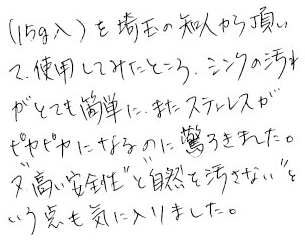 (15g入)を埼玉の知人から頂い
て、使用してみたところ、シンクの汚れ
がとても簡単に、またステンレスが
ピカピカになるのに驚ろきました。
〃高い安全性〃と〃自然を汚さない〃と
いう点も気に入りました。